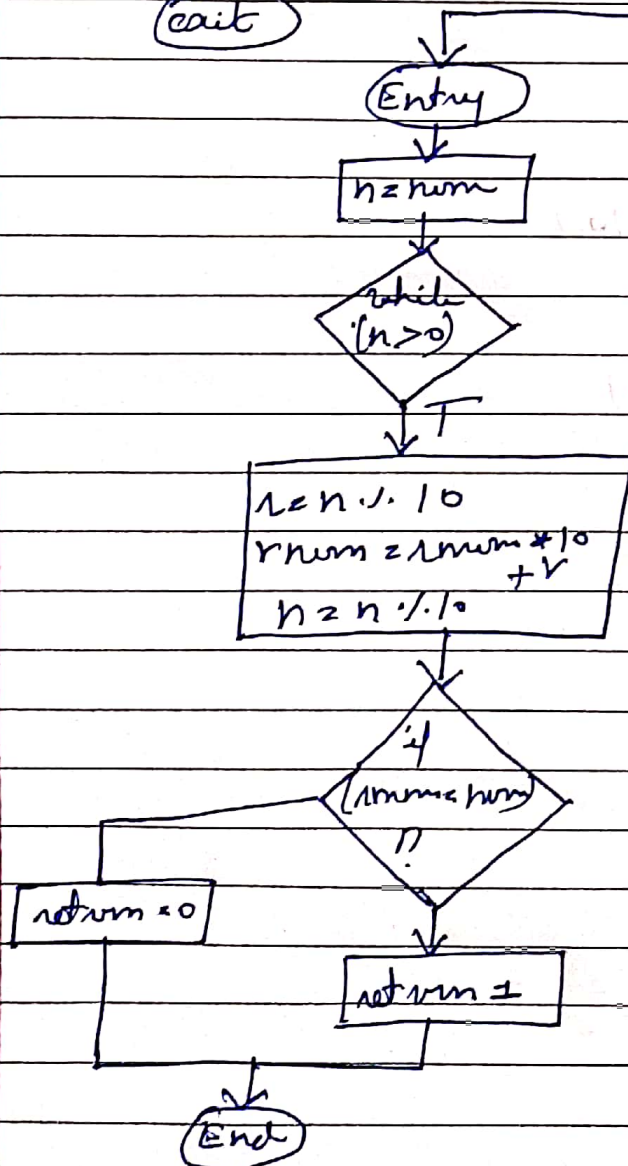 Entry
n = num
while
(n>0)
T
r = n % 10
rnum = rnum * 10
+ r
n = n % 10
if
(rnum = num)
?
return = 0
return 1
End